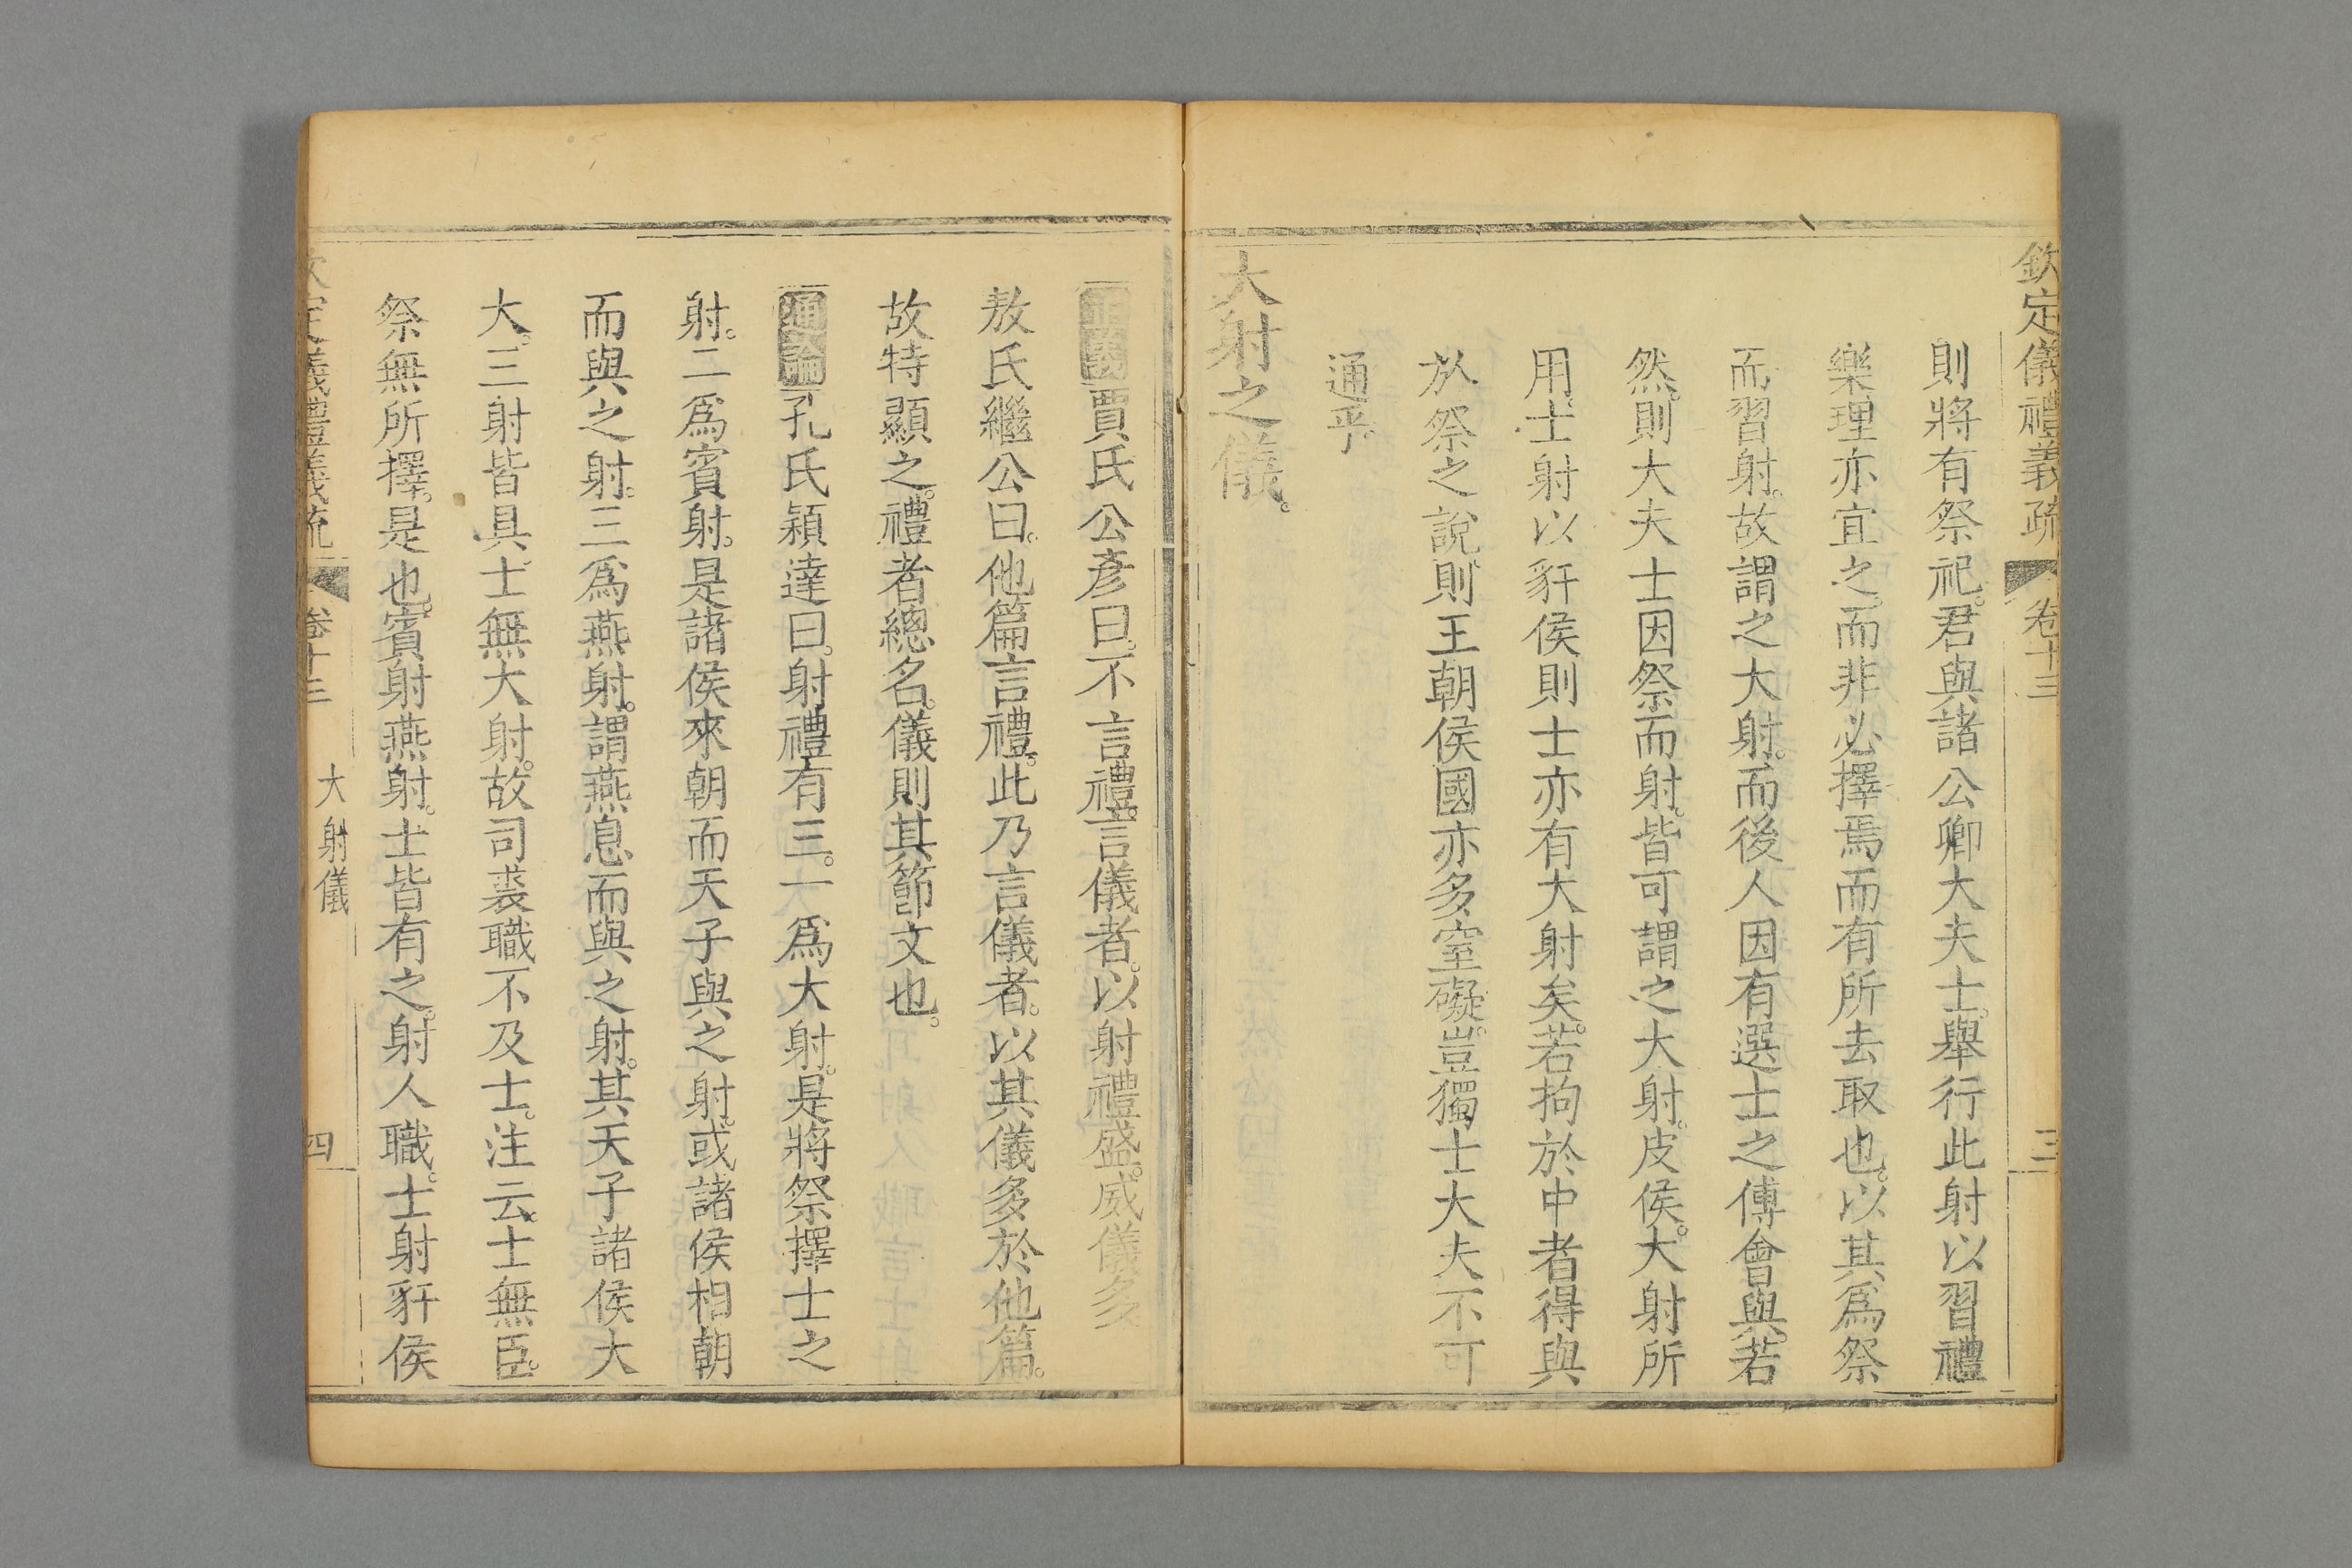 欽定儀禮義疏 卷十三 三
則將有祭祀。君與諸公卿大夫士。舉行此射以習禮
樂理亦宜之。而非必擇焉而有所去取也。以其爲祭
而習射。故謂之大射。而後人因有選士之傅會與。若
然。則大夫士因祭而射。皆可謂之大射。皮侯。大射所
用。士射以豻侯則士亦有大射矣。若拘於中者得與
於祭之說則王朝侯國亦多窒礙。豈獨士大夫不可
通乎
大射之儀。
正義賈氏公彥曰。不言禮。言儀者。以射禮盛。威儀多
敖氏繼公曰。他篇言禮。此乃言儀者。以其儀多於他篇。
故特顯之。禮者總名。儀則其節文也。
通論孔氏穎達曰。射禮有三。一爲大射。是將祭擇士之
射。二爲賓射。是諸侯來朝而天子與之射。或諸侯相朝
而與之射。三爲燕射。謂燕息而與之射。其天子諸侯大
大。三射皆具士無大射。故司裘職不及士。注云。士無臣。
祭無所擇。是也。賓射燕射。士皆有之。射人職。士射豻侯
欽定儀禮義疏 卷十三 大射儀 四